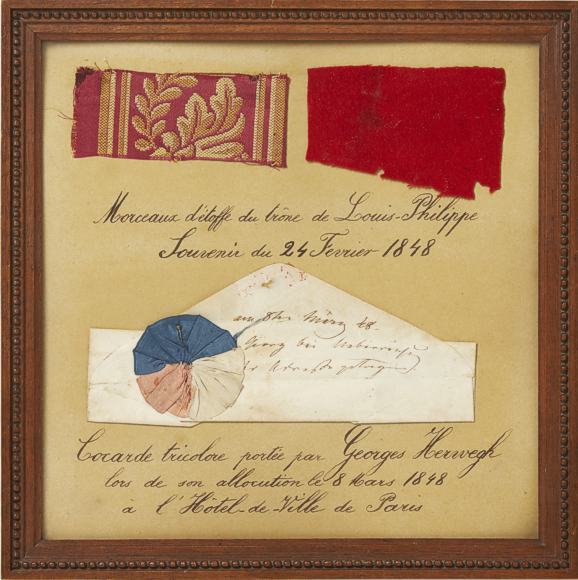 Morceaux d'étoffe du trône de Louis-Philippe
Souvenir du 24 Fevrier 1848
am 8ten März 48.
Georg bei Ueberreichung
der Adresse getragen
Cocarde tricolore portée par Georges Herwegh
lors de son allocution le 8 Mars 1848
à l'Hôtel-de-Ville de Paris